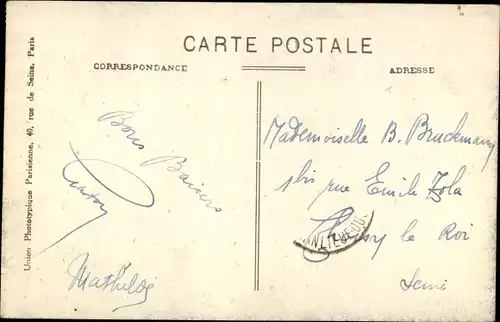 CARTE POSTALE
CORRESPONDANCE
ADRESSE
Union Phototypique Parisienne, 40, rue de Seine, Paris
Bons
Baisers
Gaston
Mathilde
Mademoiselle B. Bruckmann
rue Emile Zola
Choisy le Roi
Seine